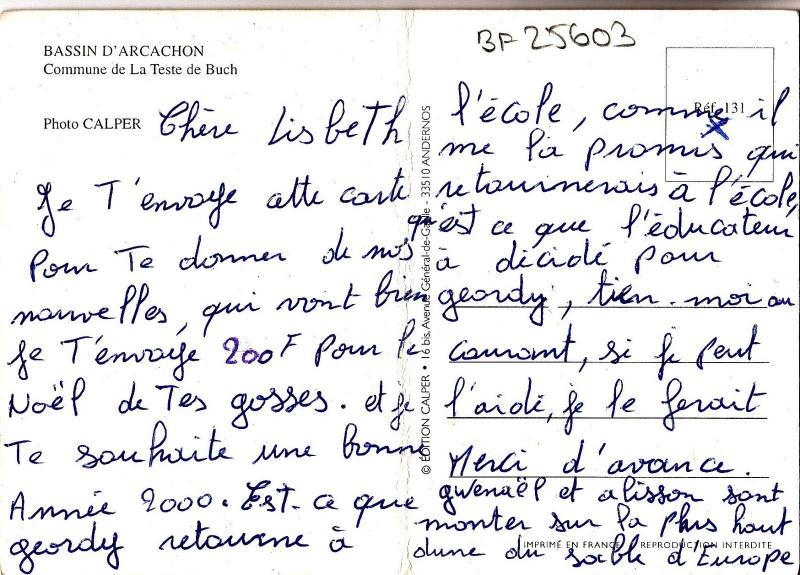 BF 25603
BASSIN D'ARCACHON
Commune de La Teste de Buch
Photo CALPER
Réf. 131
Chère Lisbeth
Je T'envoye cette carte
pour Te donner de nos
nouvelles, qui vont bien
Je T'envoye 200F pour le
Noël de Tes gosses. et je
Te souhaite une bonne
Année 2000. Est-ce que
geordy retourne à
l'école, comme il
me l'a promis qui
retournerais à l'école,
qu'est ce que l'éducateur
à décidé pour
geordy, tien-moi au
courant, si je peut
l'aidé, je le ferait
Merci d'avance.
gwenaël et alisson sont
monter sur la plus haut
dune du sable d'Europe
© EDITION CALPER • 16 bis, Avenue Général-de-Gaulle - 33510 ANDERNOS
IMPRIMÉ EN FRANCE
REPRODUCTION INTERDITE